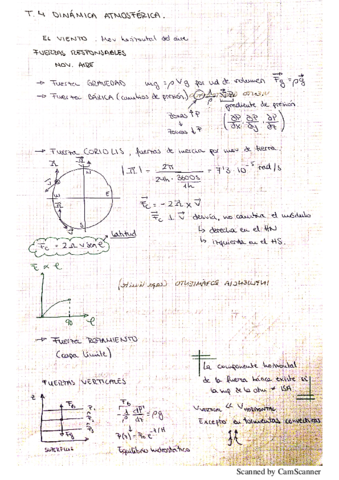 T. 4 DINÁMICA ATMOSFÉRICA.
EL VIENTO. Mov horizontal del aire
FUERZAS RESPONSABLES
MOV. AIRE
→ Fuerza GRAVEDAD mg = ρVg por ud de volumen F⃗g = ρg⃗
→ Fuerza BÁRICA (cambios de presión)
gradiente de presión
Zonas ↑P
Zonas ↓P
(∂P/∂x, ∂P/∂y, ∂P/∂z)
→ Fuerza CORIOLIS, fuerzas de inercia por mov de tierra.
|Ω⃗| = 2π / 24h · 3600s/1h = 7'3 · 10⁻⁵ rad/s
F⃗c = - 2Ω⃗ x v⃗
F⃗c ⊥ v⃗ desvía, no cambia el módulo
↳ derecha en el HN
↳ izquierda en el HS.
latitud
Fc = 2Ωv sen φ
→ Fuerza ROZAMIENTO
(capa límite)
La componente horizontal
de la fuerza bárica existe
FUERZAS VERTICALES
Vvertical ≪ Vhorizontal
Excepto en tormentas convectivas
SUPERFICIE
Equilibrio hidrostático
Scanned by CamScanner